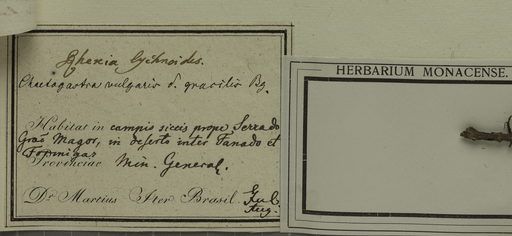 Rhexia lychnoides.
Chaetogastra vulgaris δ. gracilis
HERBARIUM MONACENSE.
Habitat in campis siccis prope Serrado
Grão Magor, in deserto inter Tanado et
Formigas
Provinciae Min. General.
Dr. Martius Iter Brasil.
Jul.
Aug.